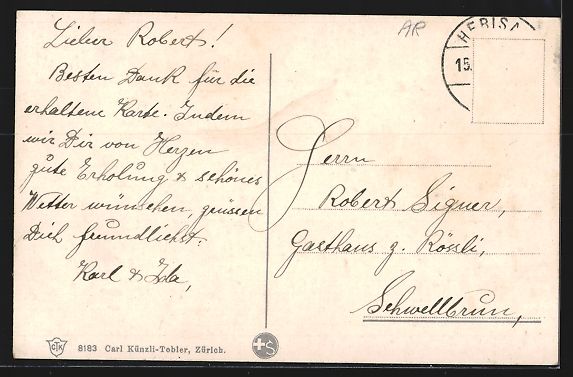 Lieber Robert!
Besten Dank für die
erhaltene Karte. Indem
wir Dir von Herzen
gute Erholung & schönes
Wetter wünschen, grüssen
Dich freundlichst.
Karl & Ida,
AR
HERISA
15.
Herrn
Robert Signer,
Gasthaus z. Rössli,
Schwellbrun,
CTK
8183 Carl Künzli-Tobler, Zürich.
S